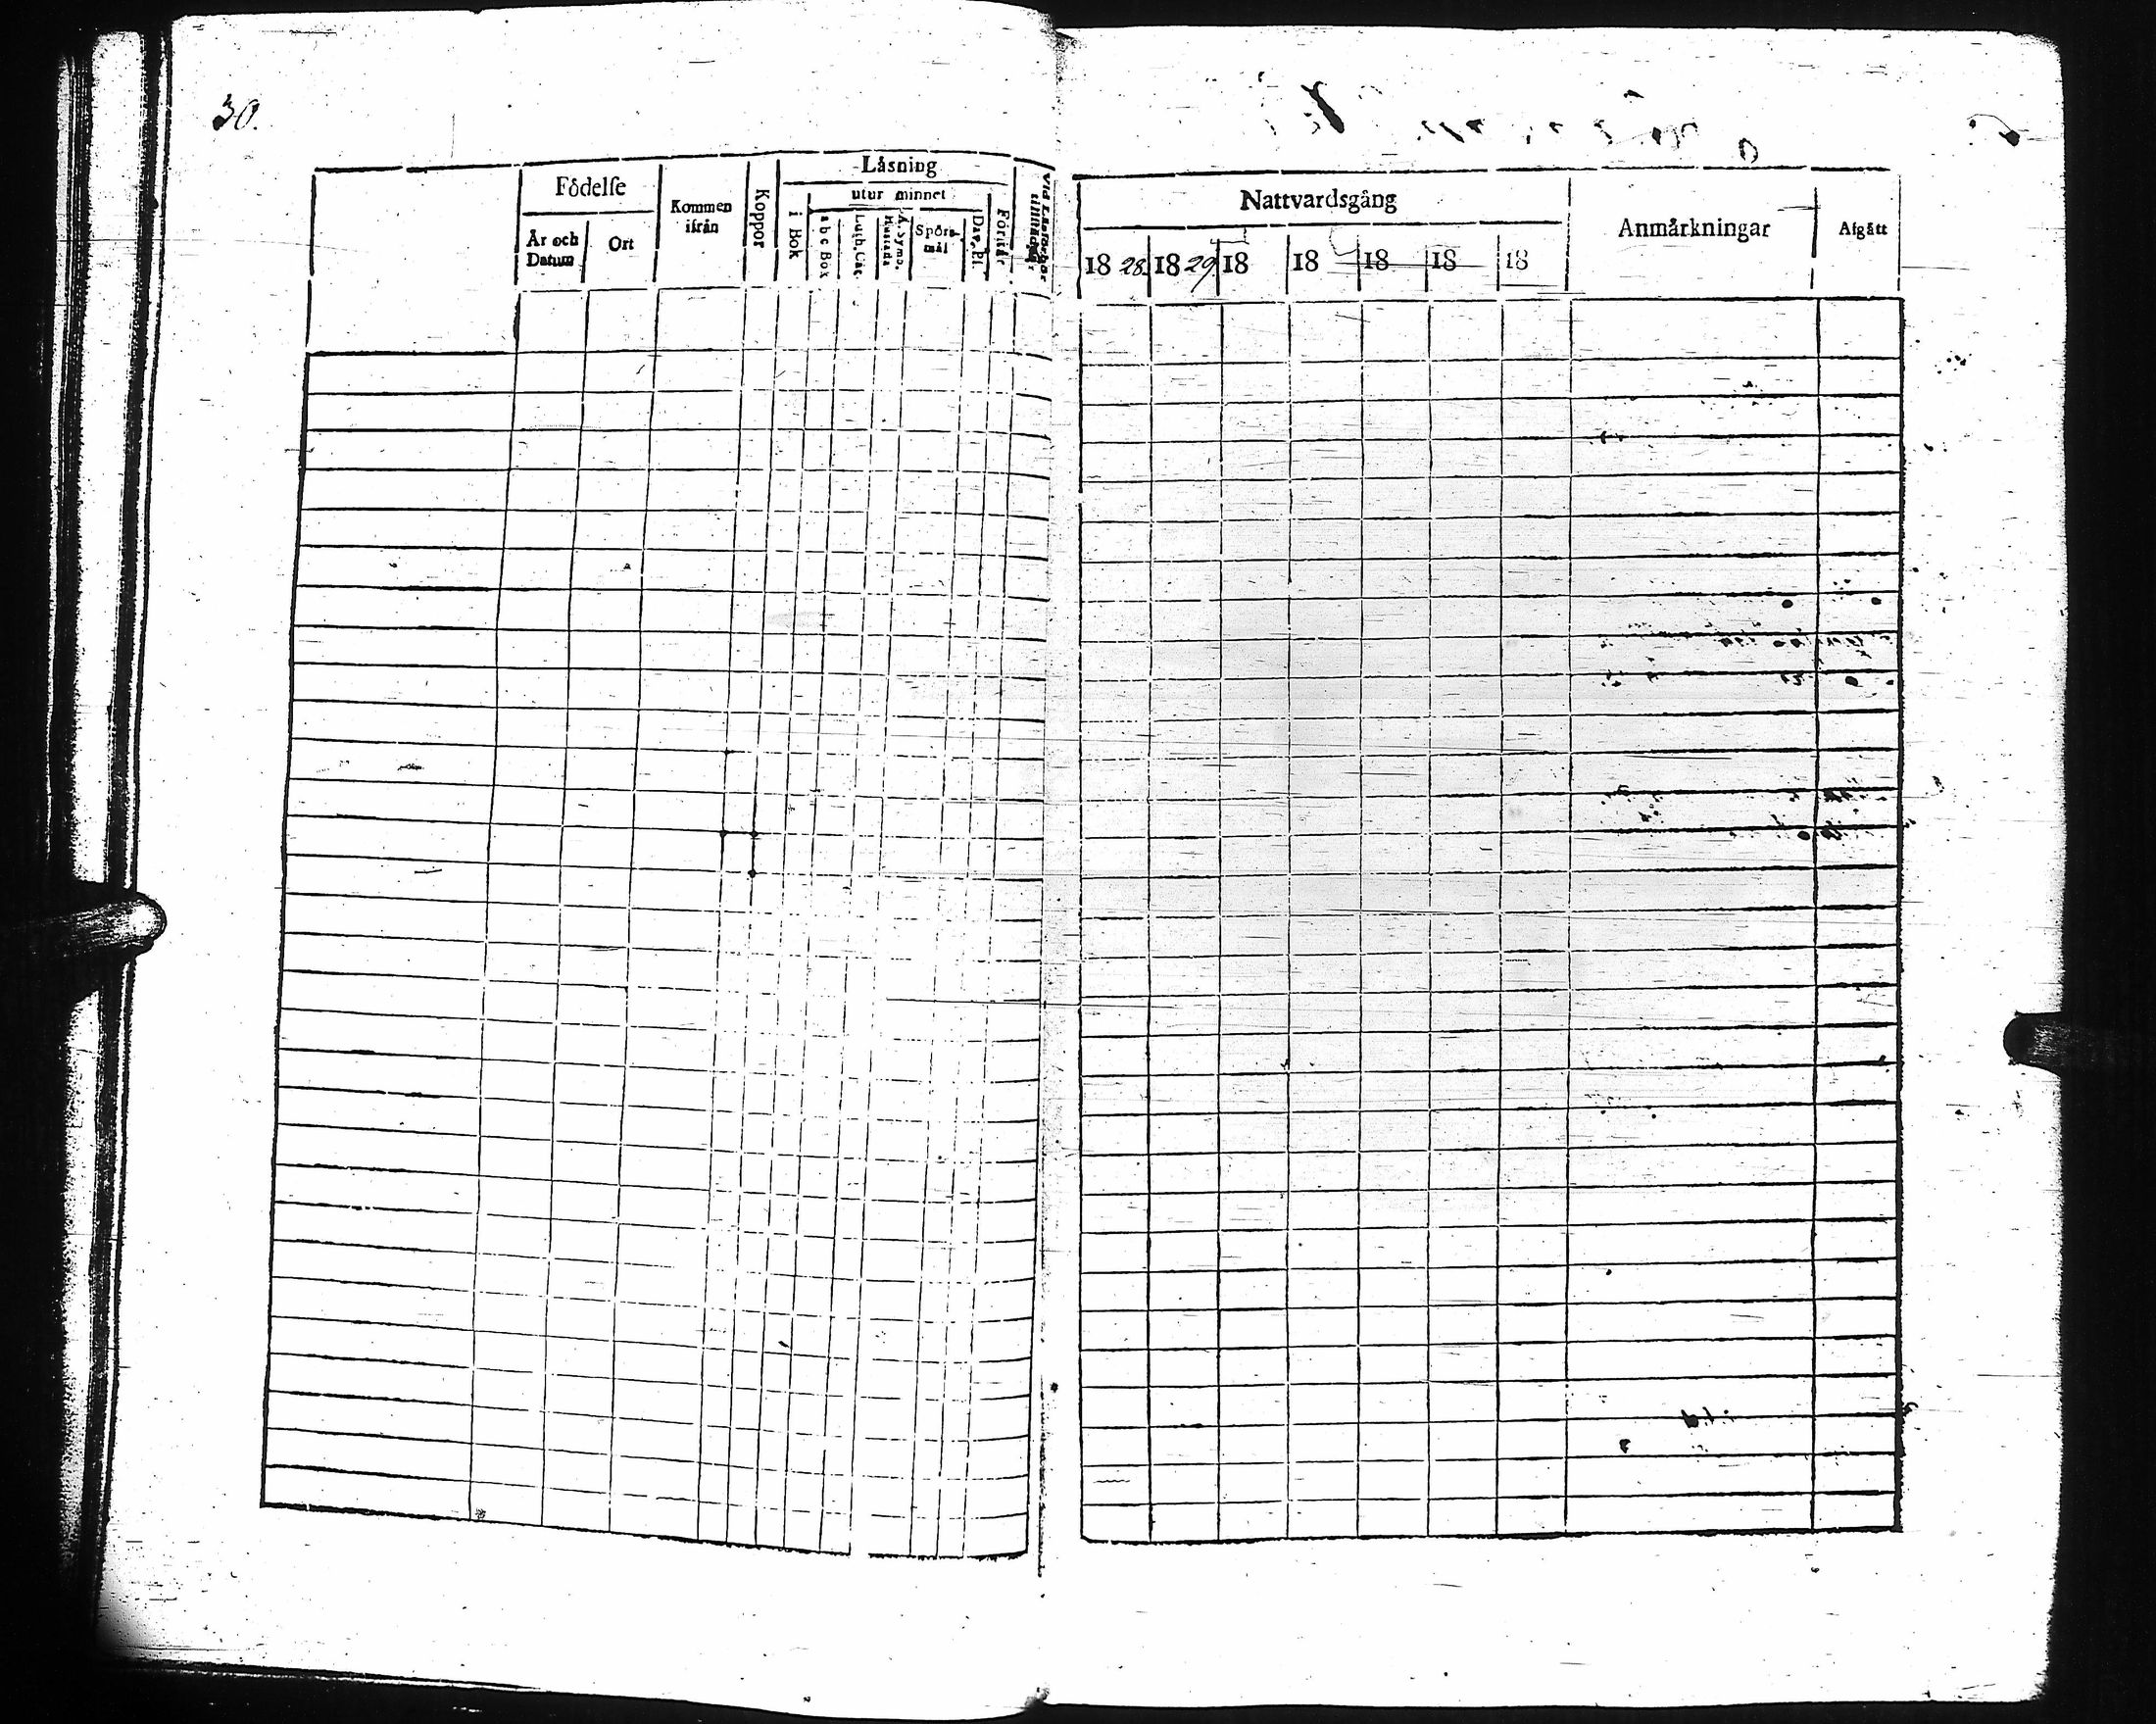 30.
Låsning
Fôdelse
utur minnet
Kommen
ifrån
Koppor
År och
Datum
Ort
i Bok
abc Bok
Luth. Cat.
A. Symb.
Hustafla
Spörs-
mål
Dav. Ps.
Förstår
Vid Läsförhör
tillstädes
Nattvardsgång
Anmårkningar
Afgått
18 28. 18 29 18 18 18 18 18